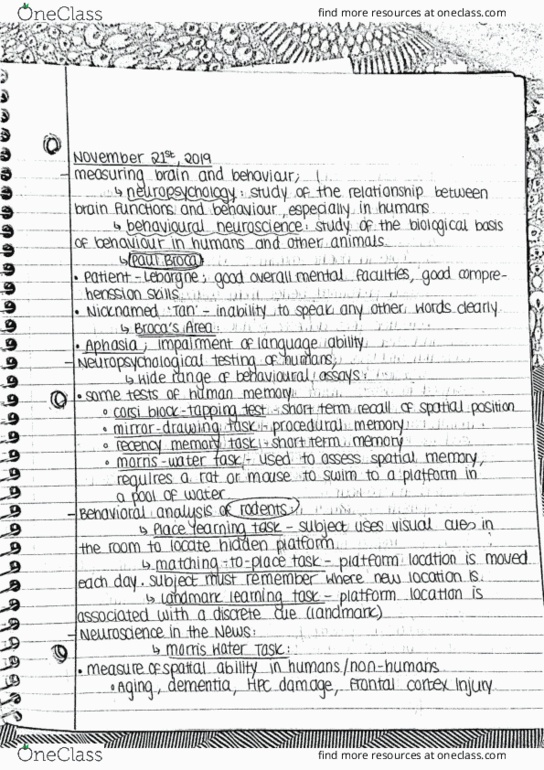 OneClass
find more resources at oneclass.com
November 21st, 2019
- measuring brain and behaviour;
↳ neuropsychology: study of the relationship between
brain functions and behaviour, especially in humans
↳ behavioural neuroscience: study of the biological basis
of behaviour in humans and other animals.
↳ Paul Broca
• Patient - Leborgne; good overall mental faculties, good compre-
henssion skills
• Nicknamed 'Tan' - inability to speak any other words clearly
↳ Broca's Area:
• Aphasia; impairment of language ability
- Neuropsychological testing of humans;
↳ wide range of behavioural assays:
• some tests of human memory
◦ corsi block-tapping test - short term recall of spatial position
◦ mirror-drawing task - procedural memory
◦ recency memory task - short term memory
◦ morris-water task - used to assess spatial memory,
requires a rat or mouse to swim to a platform in
a pool of water
- Behavioral analysis of rodents:
↳ Place learning task - subject uses visual cues in
the room to locate hidden platform
↳ matching-to-place task - platform location is moved
each day. subject must remember where new location is.
↳ Landmark learning task - platform location is
associated with a discrete cue (landmark)
- Neuroscience in the News:
↳ Morris Water Task:
• measure of spatial ability in humans/non-humans
• Aging, dementia, HPC damage, frontal cortex injury
OneClass
find more resources at oneclass.com